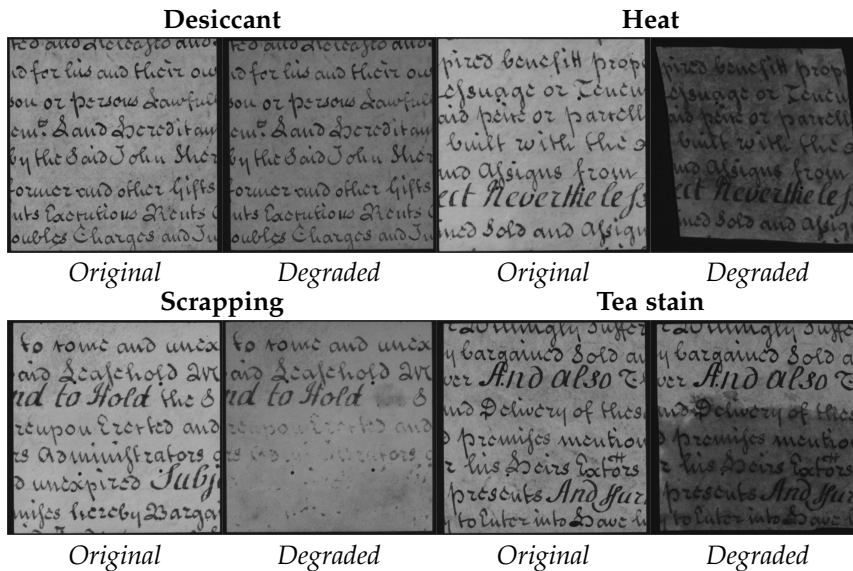 Desiccant
ed and
d for his and their ow
son or persons Lawful
Land Hereditam
by the Said John Sher
former and other Gifts
nts Executions Rents
oubles Charges and In
Original
ed and
d for his and their ow
son or persons Lawful
Land Hereditam
by the Said John Sher
former and other Gifts
nts Executions Rents
oubles Charges and In
Degraded
Heat
pired benefitt prope
essuage or Tenem
aid peice or parcell
built with the
and Assigns from
ect Nevertheless
ined Sold and Assign
Original
pired benefitt prope
essuage or Tenem
aid peice or parcell
built with the
and Assigns from
ect Nevertheless
ined Sold and Assign
Degraded
Scrapping
to come and unex
aid Leasehold
nd to Hold the S
reupon Erected and
rs Administrators
d unexpired Subj
mises hereby Barga
Original
to come and unex
aid Leasehold
nd to Hold S
reupon Erected and
Degraded
Tea stain
suffer
y bargained Sold an
ver And also
and Delivery of thes
d premises mention
r his Heirs Extors
presents And fur
y to Enter into Have
Original
suffer
y bargained Sold a
ver And also
and Delivery of thes
d premises mention
r his Heirs Extors
presents And fur
y to Enter into Have
Degraded